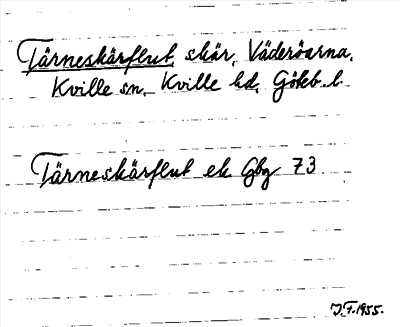 Tärneskärflut, skär, Väderöarna,
Kville sn, Kville hd, Göteb. l.
Tärneskärflut ek Gbg 73
J.F. 1955.